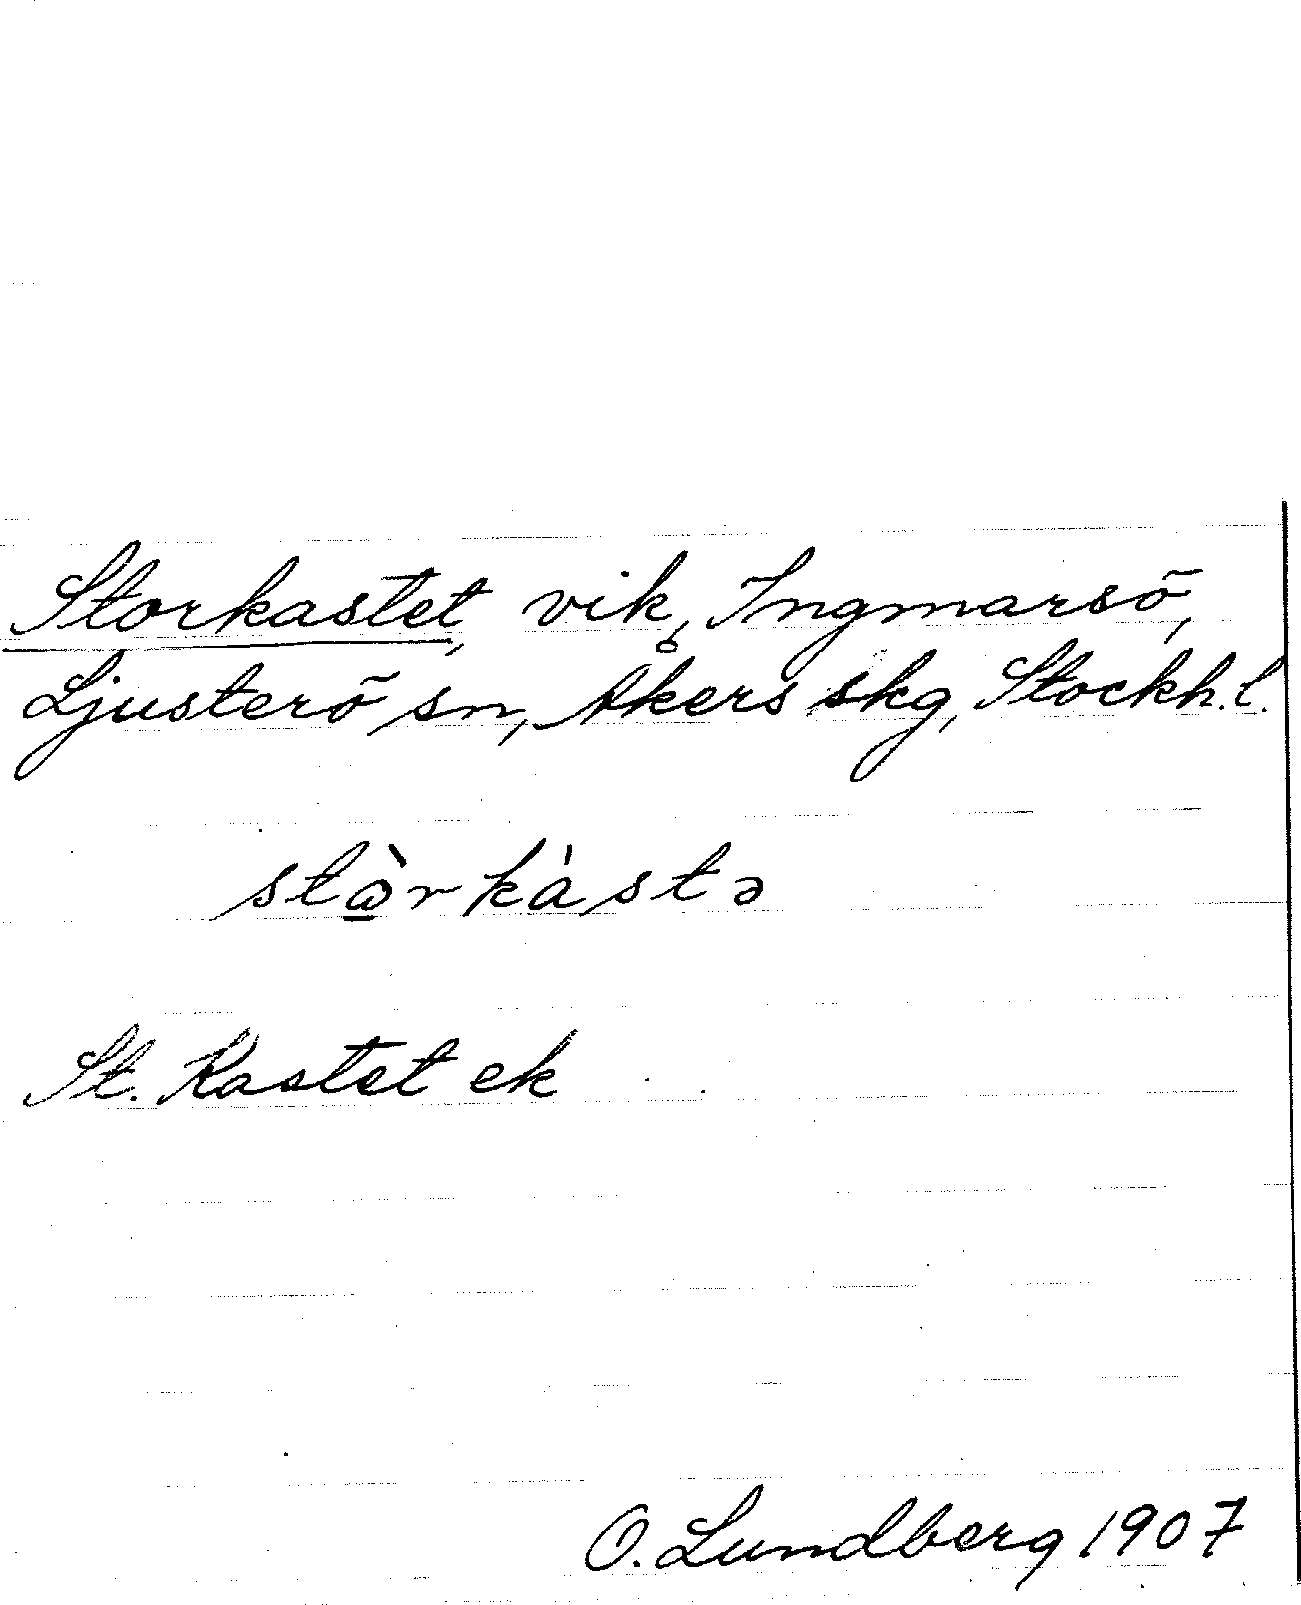 Storkastet, vik, Ingmarsö,
Ljusterö sn, Åkers skg, Stockh. l.
stὼ̲rkàstə
St. Kastet ek
O. Lundberg 1907